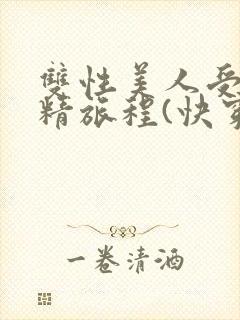 雙性美人受
精旅程(快穿
一卷清酒